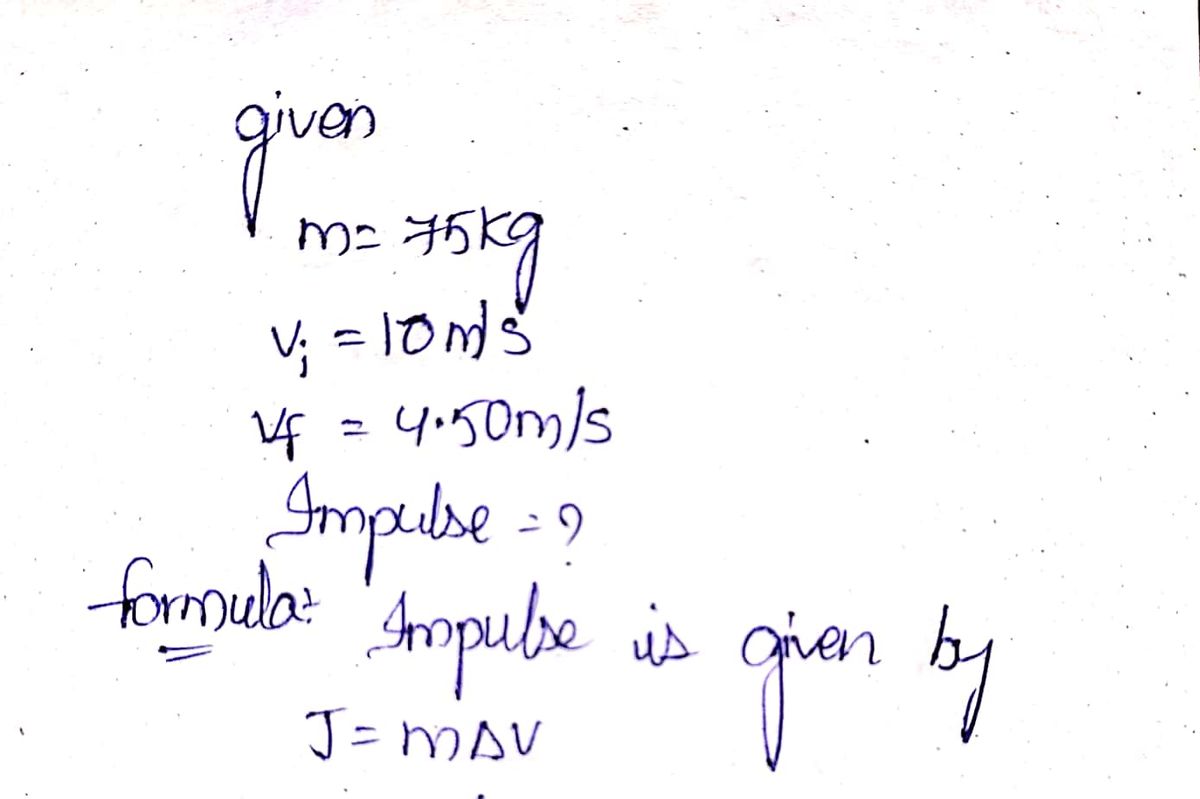 given
m= 75kg
Vi = 10m/s
Vf = 4.50m/s
Impulse = ?
formula: Impulse is given by
J = mΔV